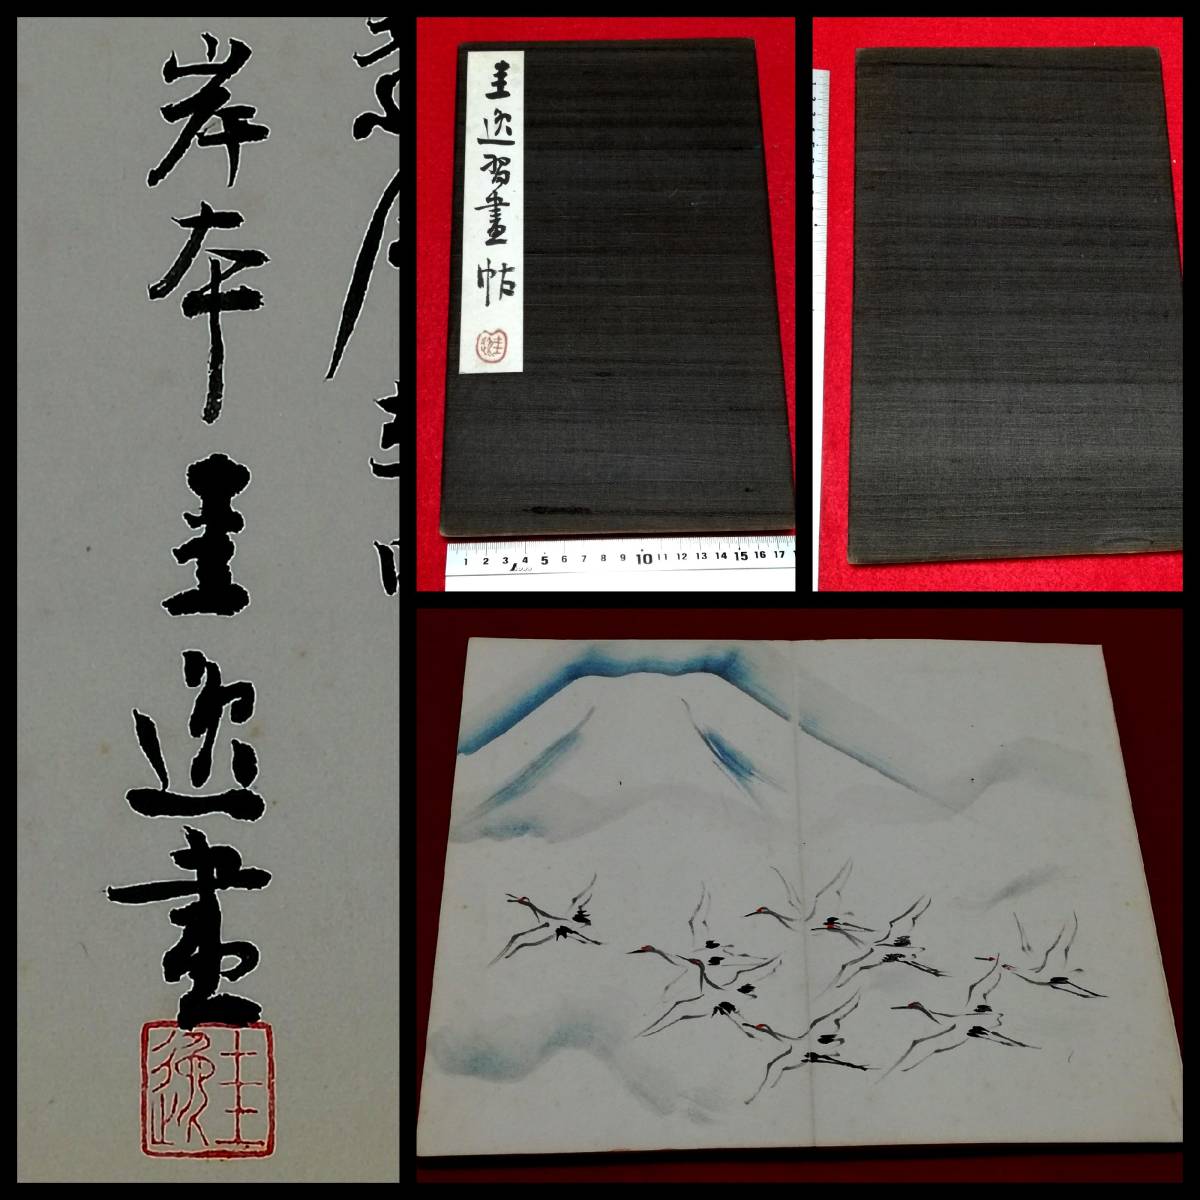 岸本圭逸畫
圭逸
圭逸習畫帖
圭逸
1 2 3 4 5 6 7 8 9 10 11 12 13 14 15 16 17